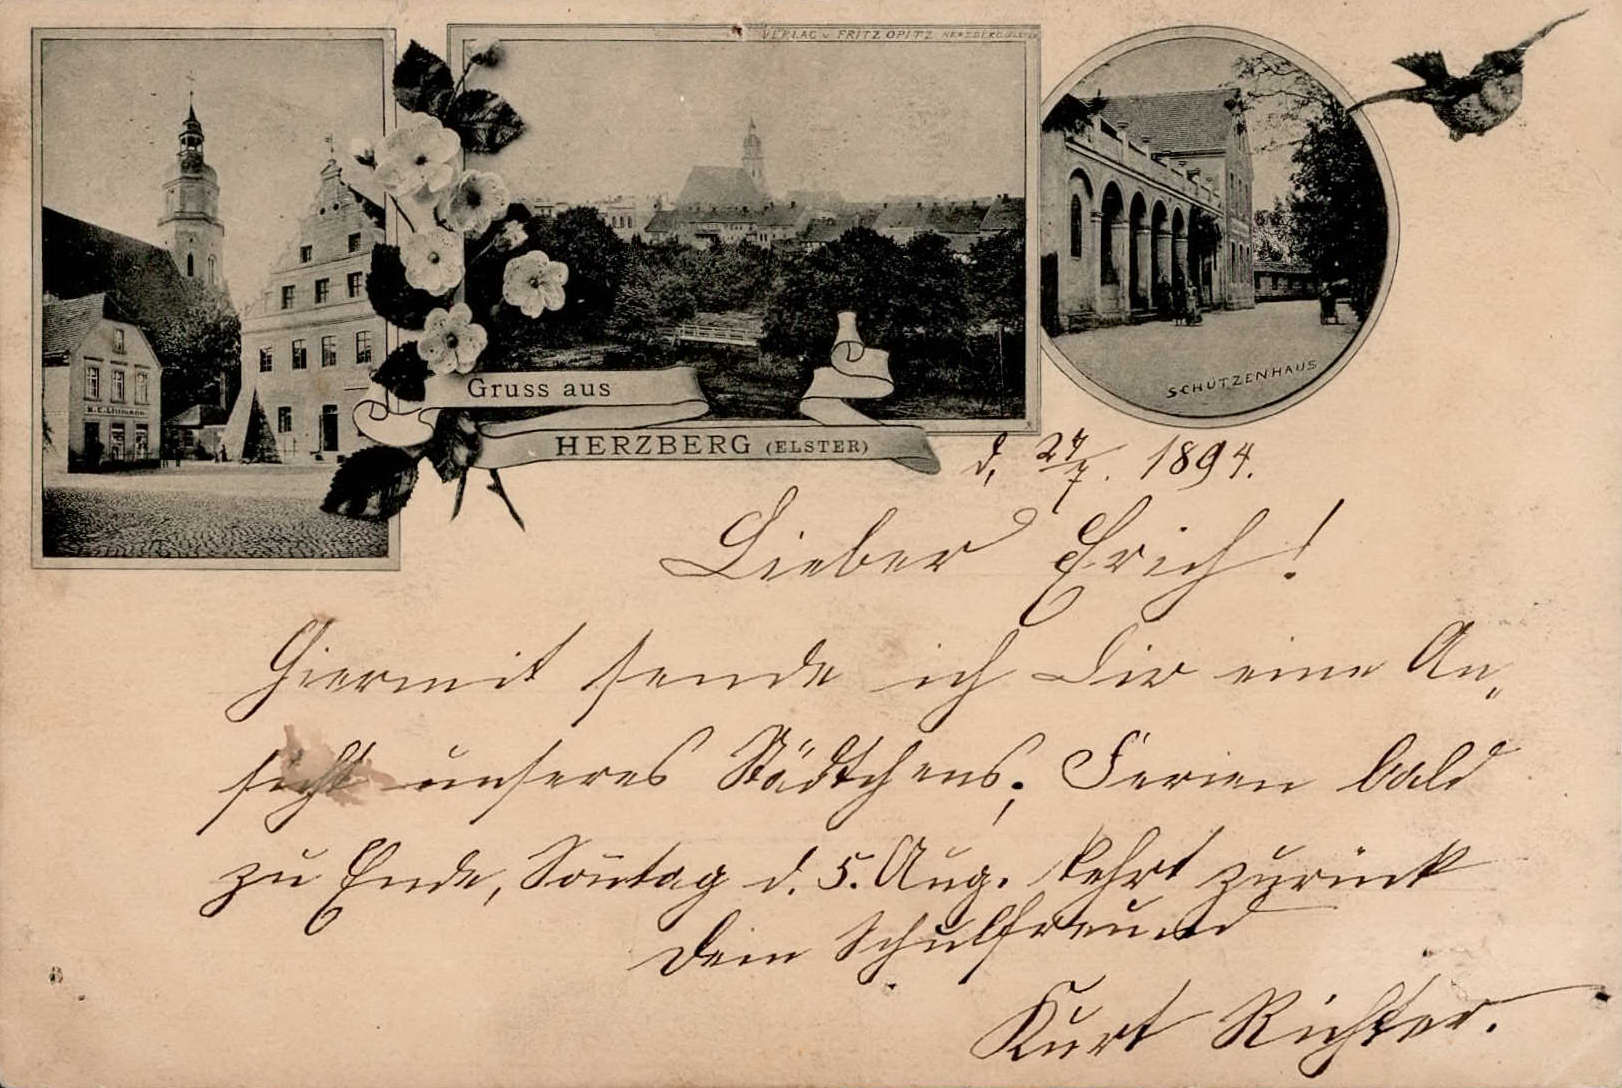 VERLAG v. FRITZ OPITZ HERZBERG (ELSTER)
SCHÜTZENHAUS
Gruss aus
HERZBERG (ELSTER)
d. 27/7. 1894.
Lieber Erich!
Hiermit sende ich Dir eine An-
sicht unseres Städtchens; Ferien bald
zu Ende, Sontag d. 5. Aug. kehrt zurück
Dein Schulfreund
Kurt Richter.